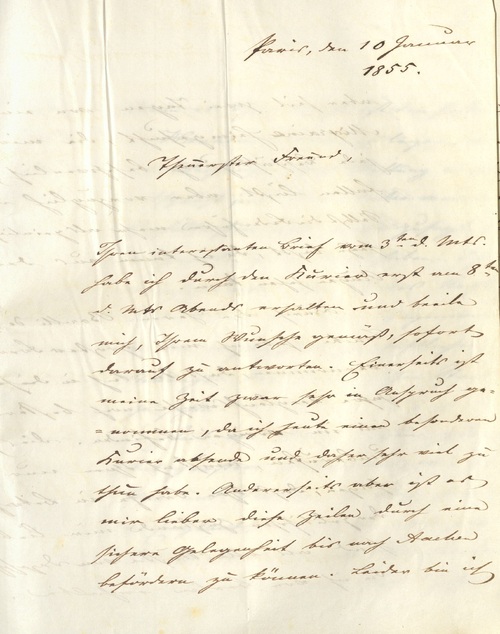 Paris, den 10 Januar
1855.
Theuerster Freund,
Ihren interessanten Brief vom 3ten d. Mts.
habe ich durch den Kurier erst am 8ten
d. Mts Abends erhalten und beeile
mich, Ihrem Wunsche gemäß, sofort
darauf zu antworten. Einerseits ist
meine Zeit zwar sehr in Anspruch ge-
=nommen, da ich heute einen besonderen
Kurier absende und daher sehr viel zu
thun habe. Andererseits aber ist es
mir lieber diese Zeilen durch eine
sichere Gelegenheit bis nach Aachen
befördern zu können. Leider bin ich